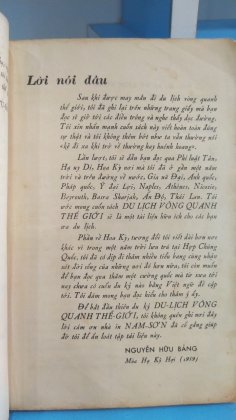 Lời nói đầu
Sau khi được may mắn đi du lịch vòng quanh
thế giới, tôi đã ghi lại trên những trang giấy mà bạn
đọc sẽ giở tới các điều trông và nghe thấy dọc đường.
Tôi xin nhấn mạnh cuốn sách này viết hoàn toàn đúng
sự thật và tôi không thêm bớt như ta vẫn thường nói
«kẻ đi xa khi trở về thường hay huênh hoang».
Lần lượt, tôi sẽ dẫn bạn đọc qua Phi luật Tân,
Hạ uy Di, Hoa Kỳ nơi mà tôi đã ở gần một năm
trời và trên đường về nước, Gia nã Đại, Anh quốc,
Pháp quốc, Ý đại Lợi, Naples, Athènes, Nicosie,
Beyrouth, Basra Sharjah, Ấn Độ, Thái Lan. Tôi
ước mong cuốn sách DU LỊCH VÒNG QUANH
THẾ GIỚI sẽ là một tài liệu hữu ích cho các bạn
ưa du lịch.
Phần về Hoa Kỳ, tương đối tôi viết dài hơn nơi
khác vì trong một năm trời lưu trú tại Hợp Chủng
Quốc, tôi đã có dịp đi thăm nhiều tiểu bang cùng nhận
xét đời sống của những nơi đó hơn nữa, tôi còn muốn
để bạn đọc qua thăm một cường quốc mà từ xưa tới
nay chưa có cuốn du ký nào bằng Việt ngữ đề cập
tới. Tôi dám mong bạn đọc hiểu cho thâm ý ấy.
Để bắt đầu thiên du ký DU-LỊCH VÒNG
QUANH THẾ-GIỚI, tôi không quên ghi nơi đây
lời cám ơn nhà in NAM-SƠN đã cố gắng giúp
đỡ tôi để ấn loát tập tài liệu này.
NGUYỄN HỮU BẢNG
Mùa Hạ Kỷ Hợi (1959)